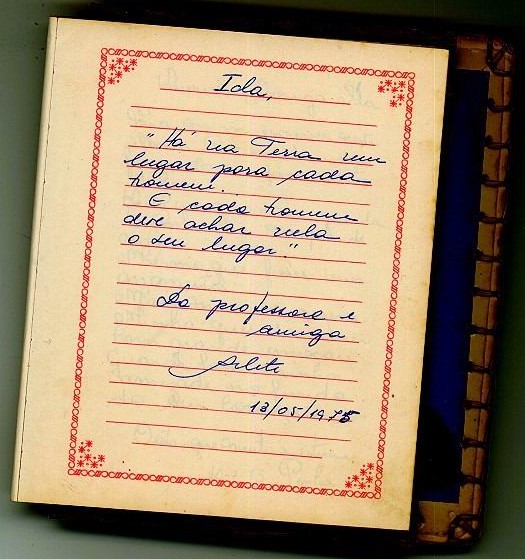 Ida,
"Há na Terra um
lugar para cada
homem.
E cada homem
deve achar nela
o seu lugar."
Da professora e
amiga
Arlete
13/05/1975